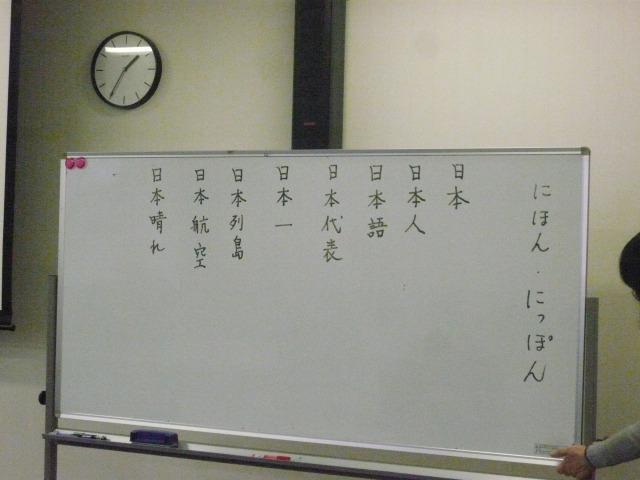 にほん・にっぽん
日本
日本人
日本語
日本代表
日本一
日本列島
日本航空
日本晴れ